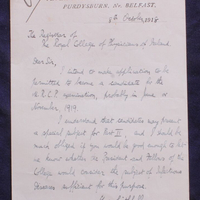 PURDYSBURN, Nr. BELFAST.
8th October, 1918
The Registrar of
The Royal College of Physicians of Ireland
Dear Sir,
I intend to make application to be
permitted to become a candidate for the
M.R.C.P. examination, probably in June or
November, 1919.
I understand that candidates may present
a special subject for Part II, and I should be
much obliged if you would be good enough to let
me know whether the President and Fellows of the
College would consider the subject of Infectious
Diseases sufficient for this purpose.